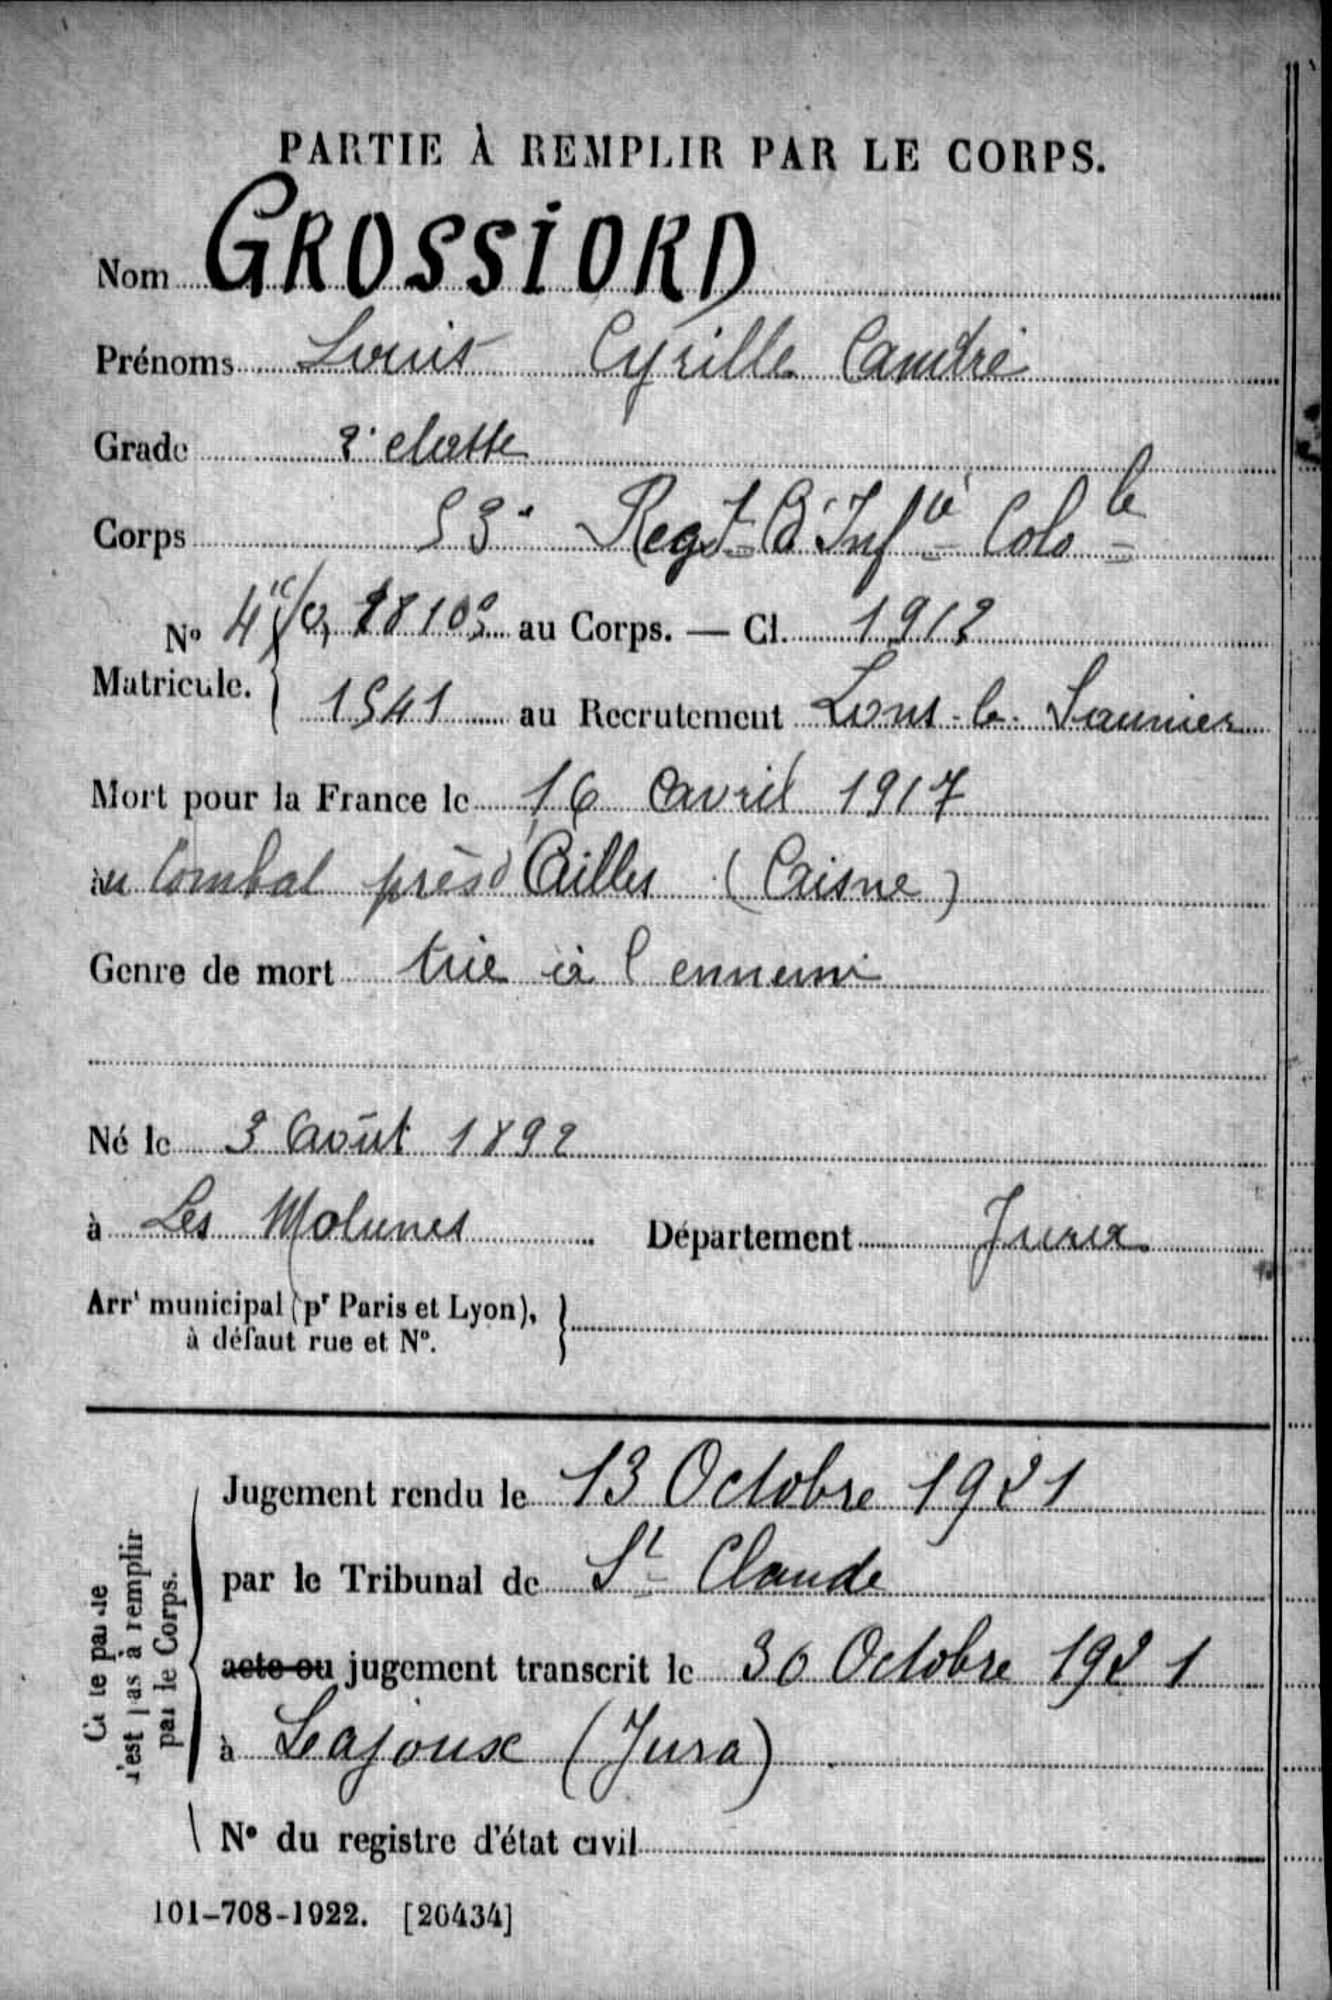 PARTIE À REMPLIR PAR LE CORPS.
Nom GROSSIORD
Prénoms Louis Cyrille André
Grade 2e classe
Corps 53e Regt d'Infie Colole
No 28103 au Corps. — Cl. 1912
Matricule. 1541 au Recrutement Lons-le-Saunier
Mort pour la France le 16 avril 1917
au combat près d'Ailles (Aisne)
Genre de mort tué à l'ennemi
Né le 3 Août 1892
à Les Molunes Département Jura
Arrt municipal (pr Paris et Lyon),
à défaut rue et N°.
Cette partie
n'est pas à remplir
par le Corps.
Jugement rendu le 13 Octobre 1921
par le Tribunal de St Claude
acte ou jugement transcrit le 30 Octobre 1921
à Lajoux (Jura)
N° du registre d'état civil
101-708-1922. [20434]